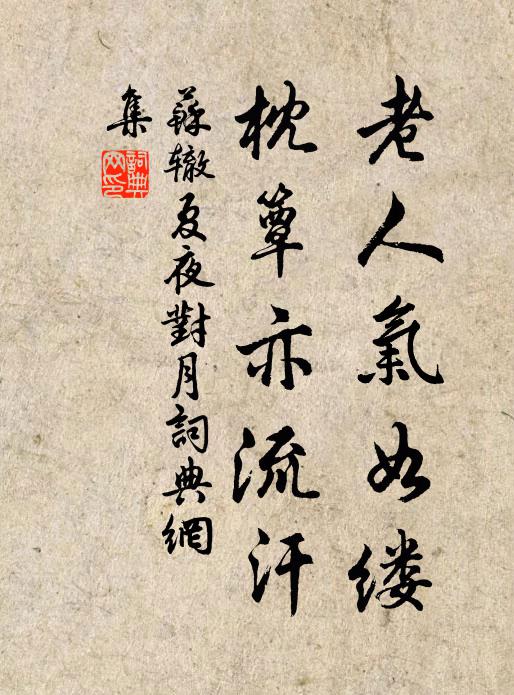 老人氣如缕
枕簟亦流汗
蘇辙夏夜對月詞典網
集
詞典
网印